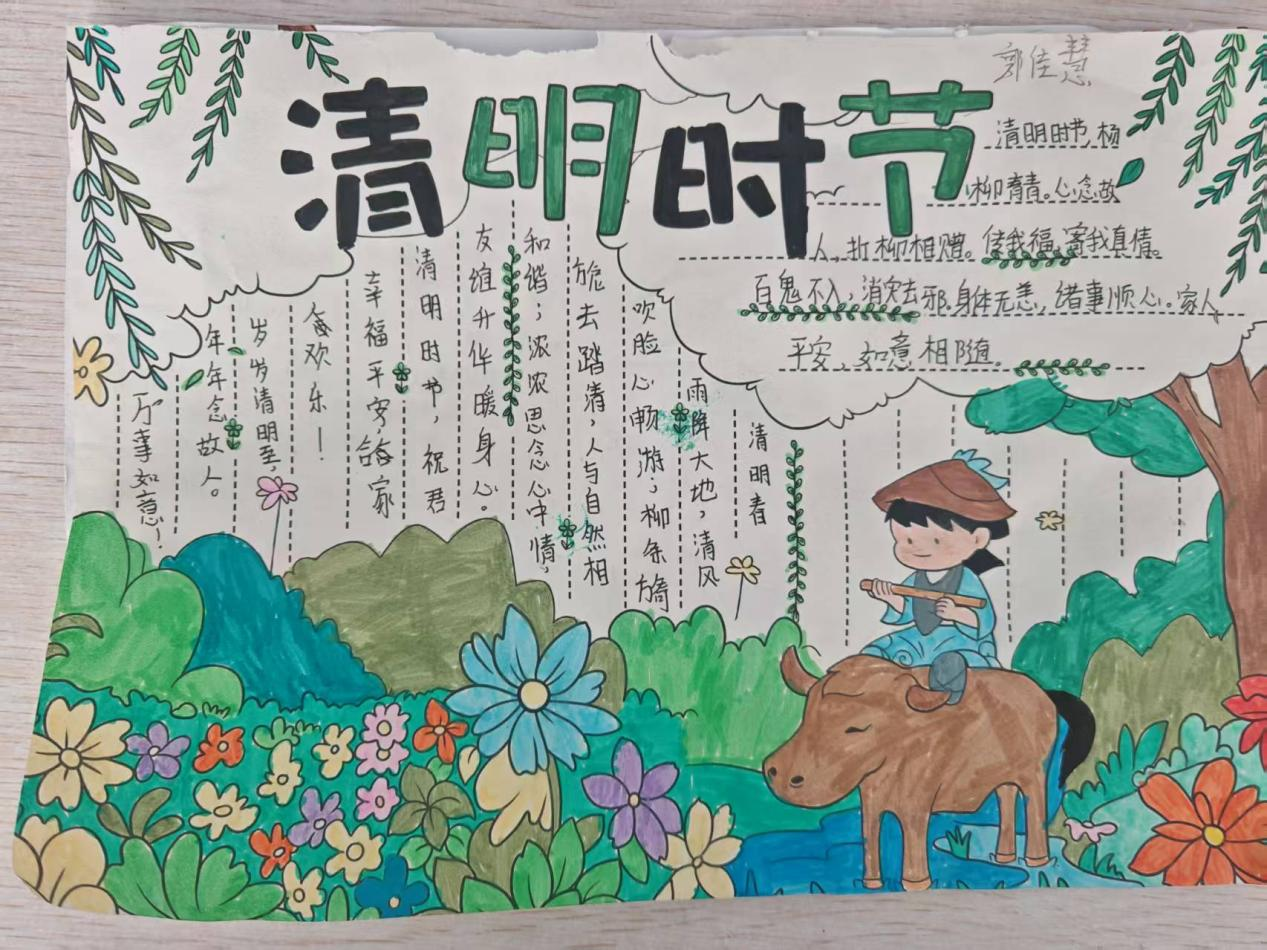 清明时节
郭佳慧
清明时节,杨
柳青青。心念故
人,折柳相赠。我福,寄我真情。
百鬼不入,消灾去邪,身体无恙,诸事顺心。家人
平安,如意相随。
清明春
雨降大地,清风
吹脸心畅游;柳条旖
旎去踏清,人与自然相
和谐;浓浓思念心中情,
友谊升华暖身心。
清明时节,祝君
幸福平安家
欢乐!
岁岁清明至,
年年念故人。
万事如意!